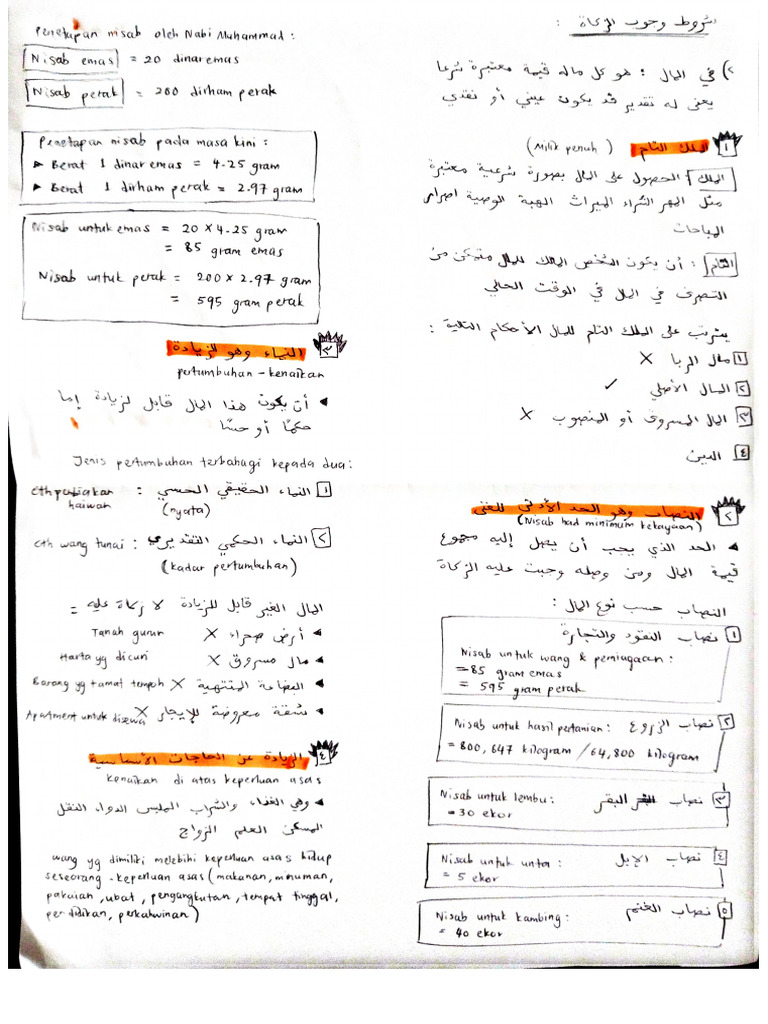 شروط وجوب الزكاة :
٢) في المال : هو كل ماله قيمة معتبرة شرعا
يعنى له تقدير قد يكون عيني أو نقدي
١ الملك التام (Milik penuh)
الملك الحصول على المال بصورة شرعية معتبرة
مثل المهر الشراء الميراث الهبة الوصية
المباحات
التام : أن يكون الشخص المالك للمال متمكن من
التصرف في المال في الوقت الحالي
يترتب على الملك التام للمال الأحكام التالية :
١ مال الربا X
٢ المال الأصلي ✓
٣ المال المسروق أو المنصوب X
٤ الدين
٢ النصاب وهو الحد الأدنى للغنى
(Nisab had minimum kekayaan)
◄ الحد الذي يجب أن يصل إليه مجموع
قيمة المال ومن وصله وجبت عليه الزكاة
النصاب حسب نوع المال :
١ نصاب النقود والتجارة
Nisab untuk wang & perniagaan :
= 85 gram emas
= 595 gram perak
٢ نصاب الزروع Nisab untuk hasil pertanian :
= 800,647 kilogram / 64,800 kilogram
٣ نصاب البقر Nisab untuk lembu :
= 30 ekor
٤ نصاب الإبل Nisab untuk unta :
= 5 ekor
٥ نصاب الغنم Nisab untuk kambing :
= 40 ekor
Penetapan nisab oleh Nabi Muhammad :
Nisab emas = 20 dinar emas
Nisab perak = 200 dirham perak
Penetapan nisab pada masa kini :
► Berat 1 dinar emas = 4.25 gram
► Berat 1 dirham perak = 2.97 gram
Nisab untuk emas = 20 x 4.25 gram
= 85 gram emas
Nisab untuk perak = 200 x 2.97 gram
= 595 gram perak
٣ النماء وهو الزيادة
pertumbuhan - kenaikan
◄ أن يكون هذا المال قابل لزيادة إما
حكمًا أو حسًا
Jenis pertumbuhan terbahagi kepada dua :
١ النماء الحقيقي الحسي : cth perbiakan haiwan
(nyata)
٢ النماء الحكمي التقديري : cth wang tunai
(kadar pertumbuhan)
المال الغير قابل للزيادة لا زكاة عليه =
◄ أرض صحراء X Tanah gurun
◄ مال مسروق X Harta yg dicuri
◄ البضاعة المنتهية X Barang yg tamat tempoh
◄ شقة معروضة للإيجار X Apartment untuk disewa
٤ الزيادة عن الحاجات الأساسية
kenaikan di atas keperluan asas
◄ وهي الغذاء والشراب الملبس الدواء النقل
المسكن العلم الزواج
wang yg dimiliki melebihi keperluan asas hidup
seseorang - keperluan asas (makanan, minuman,
pakaian, ubat, pengangkutan, tempat tinggal,
pendidikan, perkahwinan)